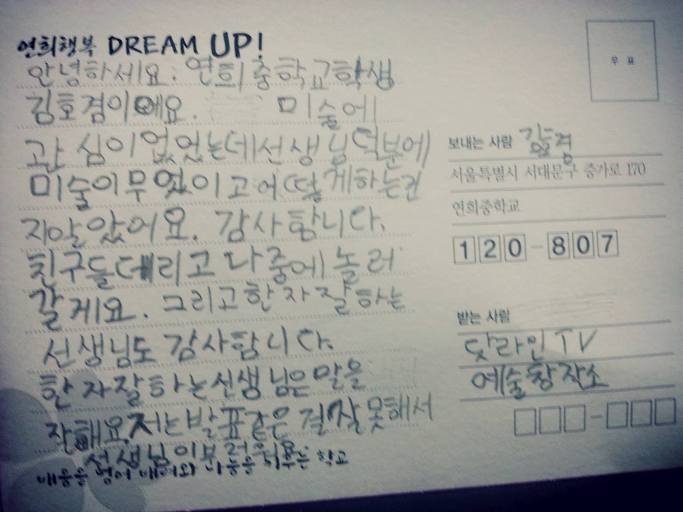 연희행복 DREAM UP!
안녕하세요. 연희중학교학생
김호겸이에요. 미술에
관심이없었는데선생님덕분에
미술이무엇이고어떻게하는건
지알았어요. 감사합니다.
친구들데리고나중에놀러
갈게요. 그리고한자잘하는
선생님도감사합니다.
한자잘하는선생님은말을
잘해요.저는발표같은걸잘못해서
선생님이부러워요
배움을 넘어 나눔을 채우는 학교
우 표
보내는 사람 김호겸
서울특별시 서대문구 증가로 170
연희중학교
120-807
받는 사람
닷라인TV
예술창작소